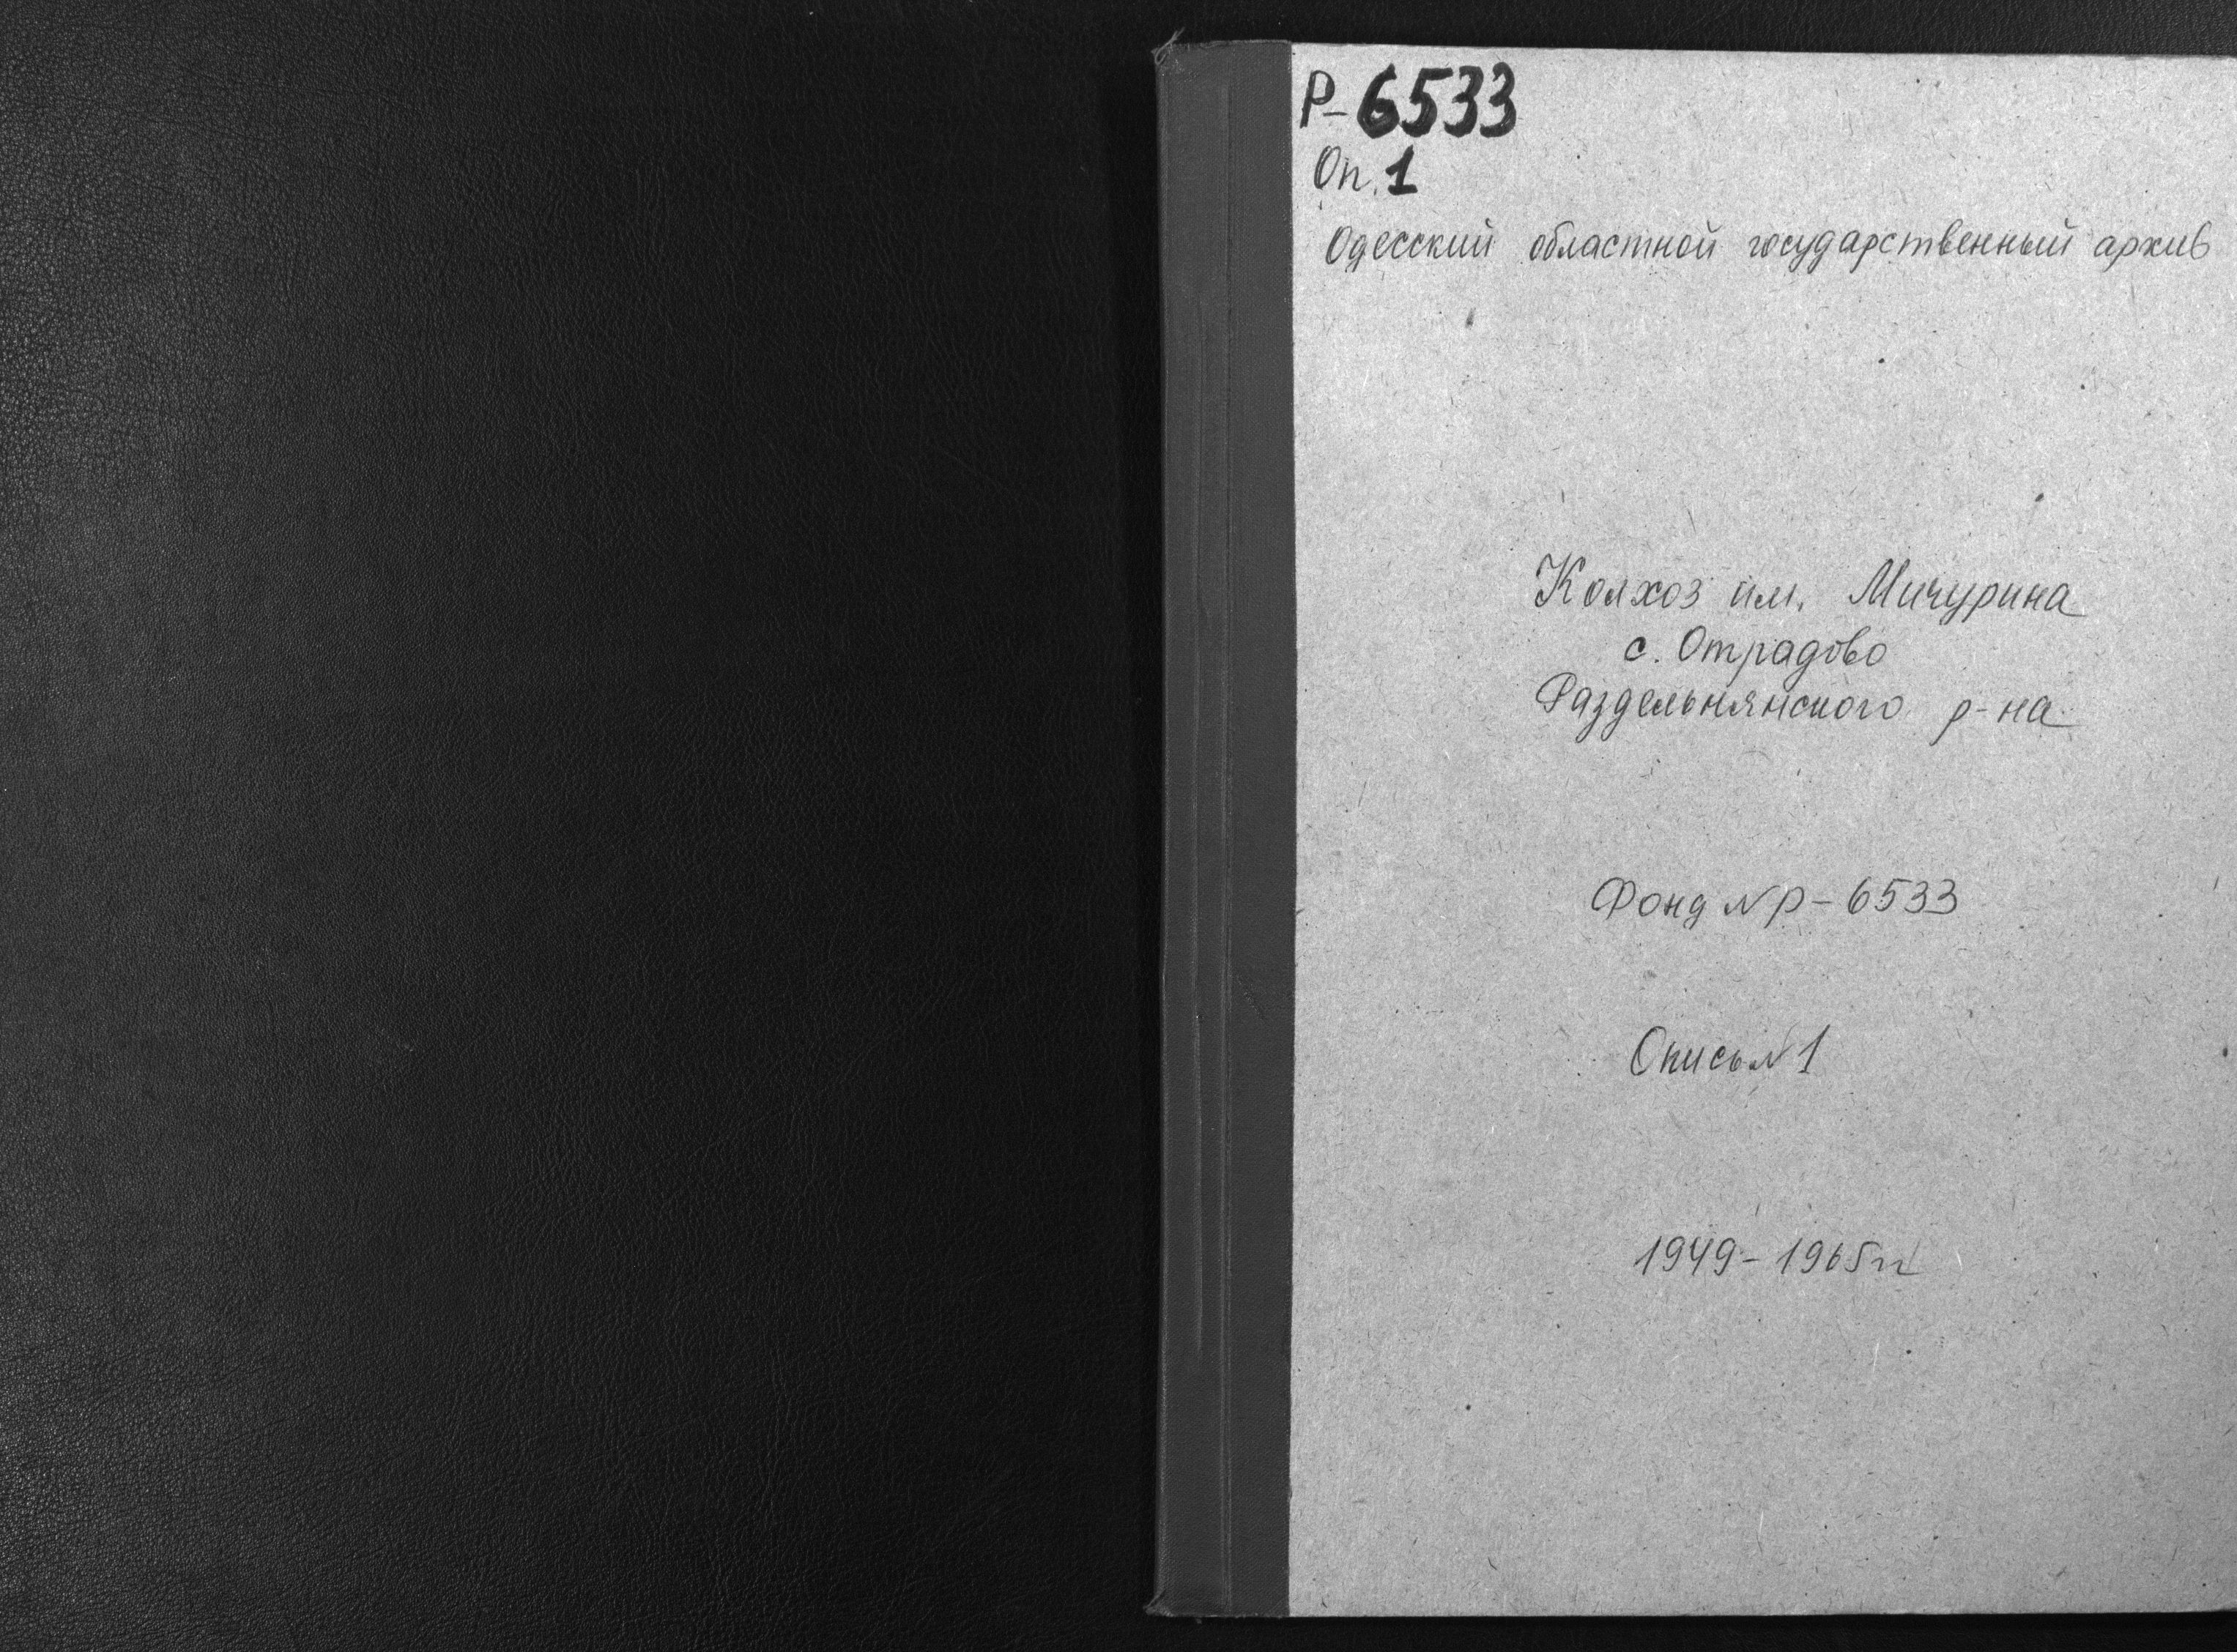 Р-6533
Оп. 1
Одесский областной государственный архив
Колхоз им. Мичурина
с. Отрадово
Раздельнянского р-на
Фонд №Р-6533
Опись№1
1949-1965гг